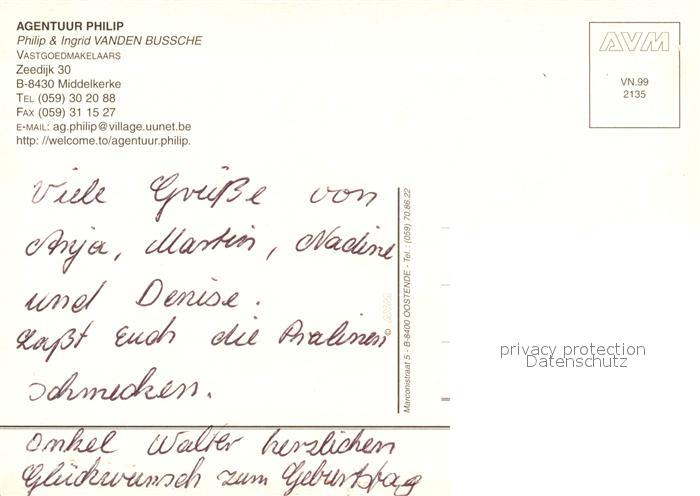 AGENTUUR PHILIP
Philip & Ingrid VANDEN BUSSCHE
VASTGOEDMAKELAARS
Zeedijk 30
B-8430 Middelkerke
TEL (059) 30 20 88
FAX (059) 31 15 27
E-MAIL: ag.philip@village.uunet.be
http: //welcome.to/agentuur.philip.
AVM
VN.99
2135
Viele Grüße von
Anja, Martin, Nadine
und Denise.
Laßt Euch die Pralinen
schmecken.
Onkel Walter herzlichen
Glückwunsch zum Geburtstag
© AVM
Marconistraat 5 - B-8400 OOSTENDE - Tel.: (059) 70.86.22
privacy protection
Datenschutz